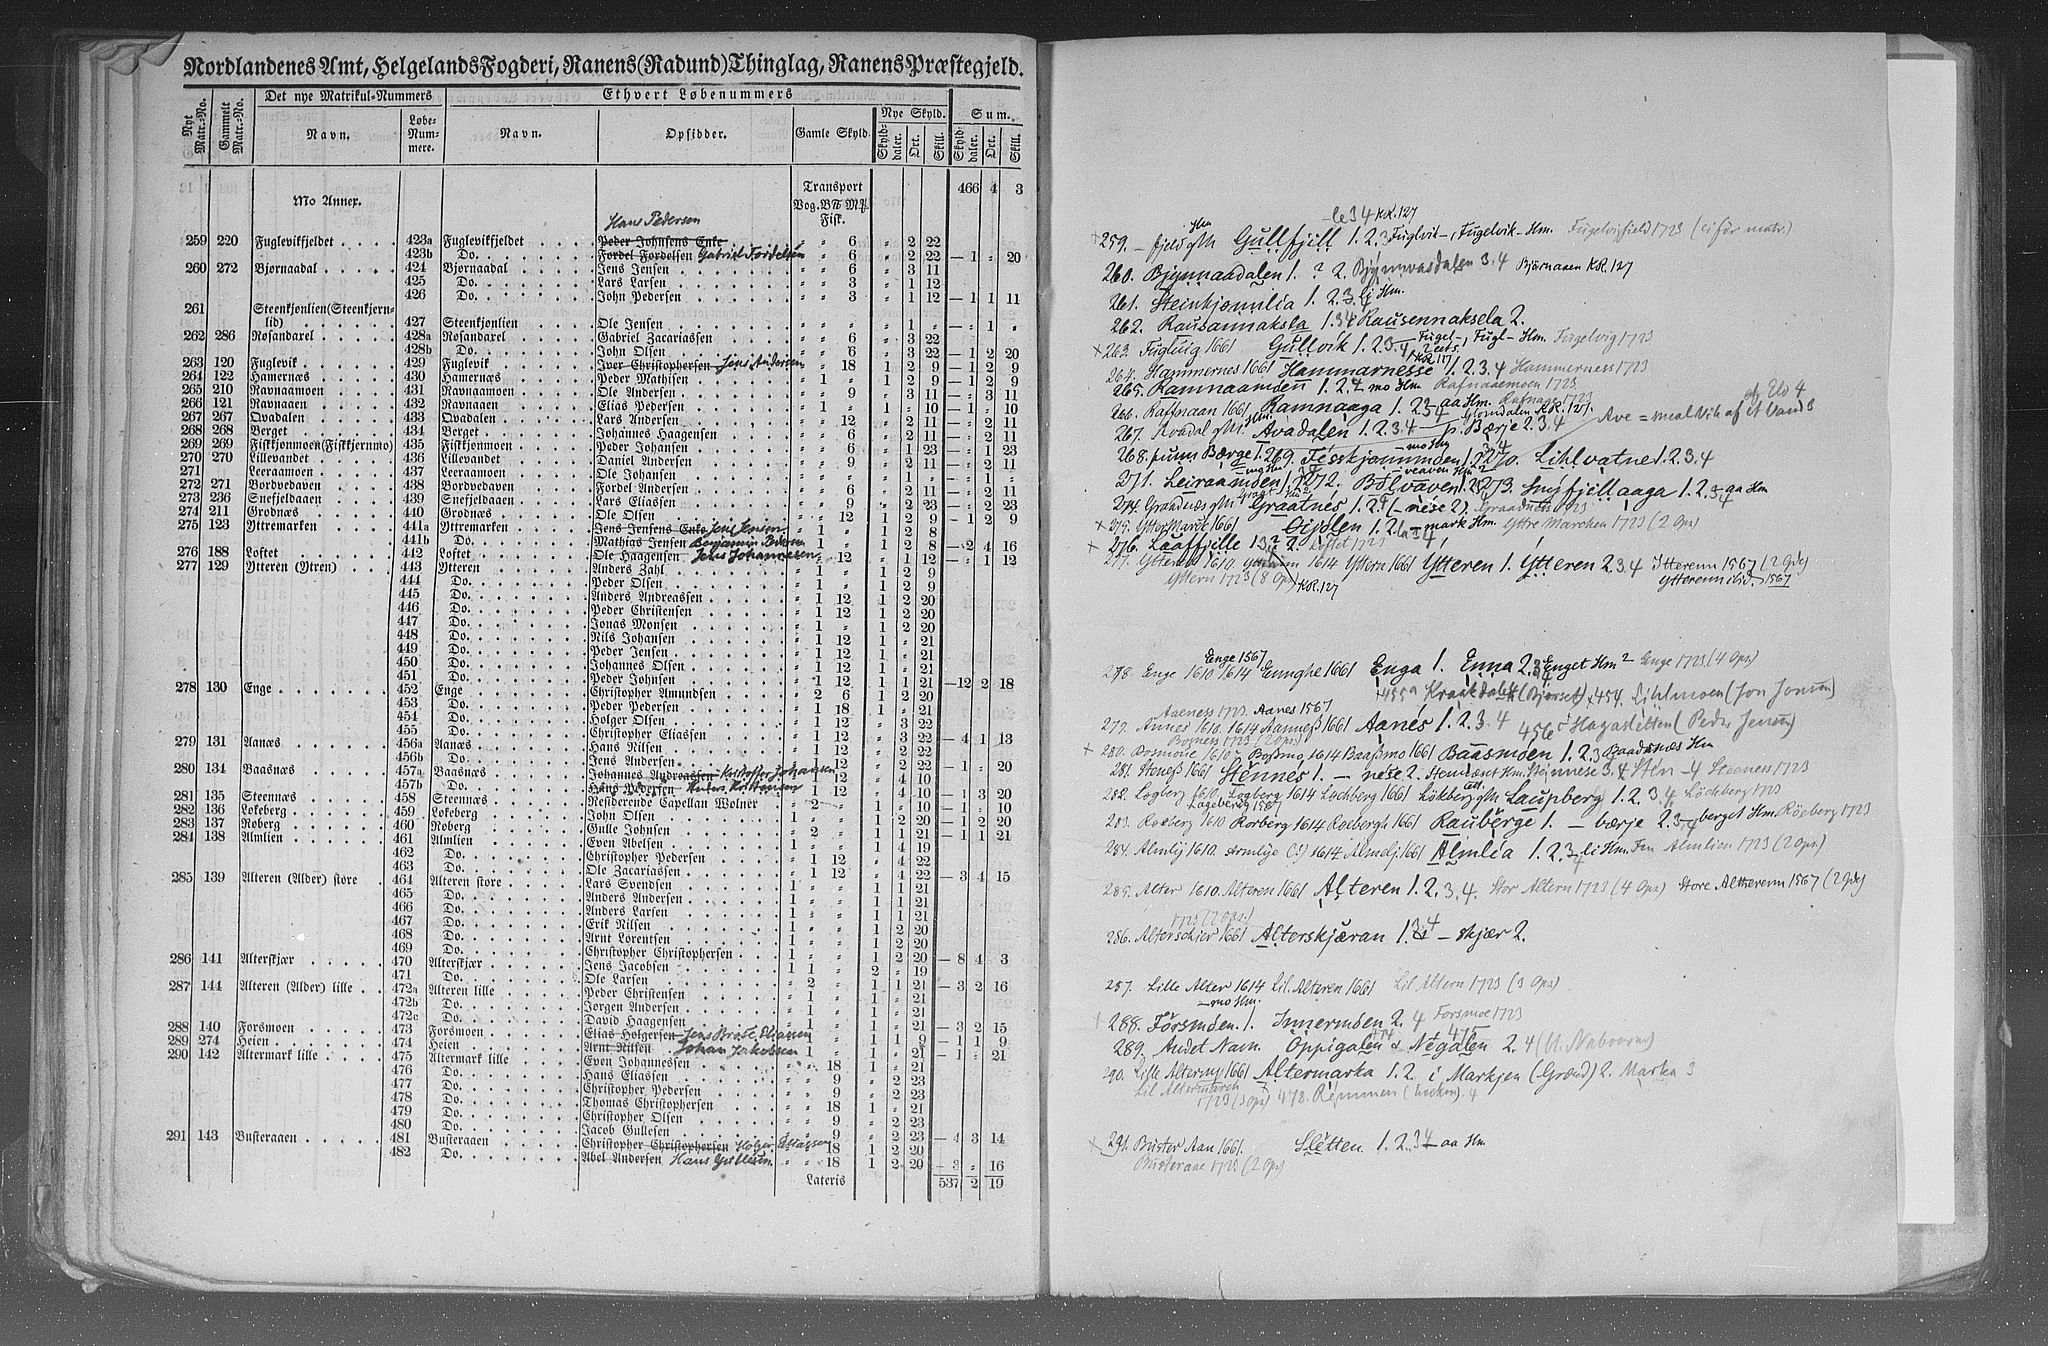 Nordlandenes Amt, Helgelands Fogderi, Ranens (Radund) Thinglag, Ranens Præstegjeld.
Nyt Matr.-No. Gammelt Matr.-No. Det nye Matrikul-Nummers Ethvert Løbenummers
Navn. Løbe-Nummere. Navn. Opsidder. Gamle Skyld. Nye Skyld. Sum.
Skylddaler. Ort. Skill. Skylddaler. Ort. Skill.
Mo Annex. Transport 466 4 3
Vog. B℔ M℔ Fisk.
Hans Pedersen
259 220 Fuglevikfjeldet 423a Fuglevikfjeldet Peder Johnsens Enke " " 6 " 2 22
423b Do. Fordel Fordelsen Gabriel Fordelsen " " 6 " 2 22 — 1 " 20
260 272 Bjørnaadal 424 Bjørnaadal Jens Jensen " " 6 " 3 11
425 Do. Lars Larsen " " 3 " 1 12
426 Do. John Pedersen " " 3 " 1 12 — 1 1 11
261 Steenkjønlien (Steenkjernlid) 427 Steenkjønlien Ole Jensen " " " " 1 " — " 1 "
262 286 Rosandarel 428a Rosandarel Gabriel Zacariassen " " 6 " 3 22
428b Do. John Olsen " " 6 " 3 22 — 1 2 20
263 120 Fuglevik 429 Fuglevik Iver Christophersen Jens Andersen " " 18 1 2 9 — 1 2 9
264 122 Hamernæs 430 Hamernæs Peder Mathisen " 1 " 1 2 9 — 1 2 9
265 210 Ravnaamoen 431 Ravnaamoen Ole Andersen " " 9 " 3 11 — " 3 11
266 121 Ravnaaen 432 Ravnaaen Elias Pedersen " 1 " 1 " 10 — 1 " 10
267 267 Ovadalen 433 Ovadalen Lars Andersen " " 12 " 2 11 — " 2 11
268 268 Berget 434 Berget Johannes Haagensen " " 6 " 2 11 — " 2 11
269 269 Fiskkjønmoen (Fiskkjernmo) 435 Fiskkjønmoen Peder Johansen " " 6 " 1 23 — " 1 23
270 270 Lillevandet 436 Lillevandet Daniel Andersen " " 9 " 2 11 — " 2 11
271 Leeraamoen 437 Leeraamoen Ole Johansen " " " " 1 " — " 1 "
272 271 Bordvedaven 438 Bordvedaven Fordel Andersen " " 6 " 2 11 — " 2 11
273 236 Snefjeldaaen 439 Snefjeldaaen Lars Eliassen " " 9 " 2 23 — " 2 23
274 211 Grodnæs 440 Grodnæs Ole Olsen " " 12 1 2 9 — 1 2 9
275 123 Yttremarken 441a Yttremarken Jens Jensens Enke Jens Jensen " 1 " 1 2 8
441b Do. Mathias Jensen Benjamin Pedersen " 1 " 1 2 8 — 2 4 16
276 188 Loftet 442 Loftet Ole Haagensen Jens Johannesen " " 12 " 1 12 — " 1 12
277 129 Ytteren (Ytren) 443 Ytteren Anders Zahl " 1 " 1 2 9
444 Do. Peder Olsen " 1 " 1 2 9
445 Do. Anders Andreassen " 1 12 1 2 20
446 Do. Peder Christensen " 1 12 1 2 20
447 Do. Jonas Monsen " 1 " 1 2 20
448 Do. Nils Johansen " 1 12 1 " 21
449 Do. Peder Jensen " 1 12 1 " 21
450 Do. Johannes Olsen " 1 12 1 " 21
451 Do. Peder Johnsen " 1 12 1 1 21 — 12 2 18
278 130 Enge 452 Enge Christopher Amundsen " 2 6 1 2 "
453 Do. Peder Pedersen " 1 18 1 1 "
454 Do. Holger Olsen " 1 12 " 3 22
455 Do. Christopher Eliassen " 1 12 " 3 22 — 4 1 13
279 131 Aanæs 456a Aanæs Hans Nilsen " 1 12 " 2 22
456b Do. Jens Andersen " 1 12 " 2 22 — 1 " 20
280 134 Baasnæs 457a Baasnæs Johannes Andreassen Kristoffer Johansen 1 12 " 4 10
457b Do. Hans Pedersen Anders Kristensen 1 12 " 4 10 — 1 3 20
281 135 Steennæs 458 Steennæs Residerende Capellan Wolner " 2 " 1 " 10 — 1 " 10
282 136 Lokeberg 459 Lokeberg John Olsen 1 " " 1 2 20 — 1 2 20
283 137 Roberg 460 Roberg Gulle Johnsen " 2 " 1 1 21 — 1 1 21
284 138 Almlien 461 Almlien Even Abelsen 1 " " " 4 19
462 Do. Christopher Pedersen " 1 12 " 4 22
463 Do. Ole Zacariassen " 1 12 " 4 22 — 3 4 15
285 139 Alteren (Alder) store 464 Alteren store Lars Svendsen 1 " " 1 1 21
465 Do. Anders Andersen 1 " " 1 1 21
466 Do. Anders Larsen 1 " " 1 1 21
467 Do. Erik Nilsen 1 " " 1 2 20
468 Do. Arnt Lorentsen 1 " " 1 2 20
469 Do. Christopher Christophersen 1 " " 1 2 20 — 8 4 3
286 141 Alterskjær 470 Alterskjær Jens Jacobsen 1 1 " 2 " 19
471 Do. Ole Larsen " 2 " 1 1 21 — 3 2 16
287 144 Alteren (Alder) lille 472a Alteren lille Peder Christensen " 1 " 1 " 21
472b Do. Jørgen Andersen " 1 " 1 " 21
472c Do. David Haagensen " 1 " 1 " 21 — 3 2 15
288 140 Forsmoen 473 Forsmoen Elias Holgersen Jens Brose Eliassen 1 " " 1 1 9 — 1 1 9
289 274 Heien 474 Heien Arnt Nilsen Johan Jakobsen 1 " " " 21 — 1 " 21
290 142 Altermark lille 475 Altermark lille Even Johannessen " " 18 1 " 21
476 Do. Hans Eliassen " " 9 " 2 23
477 Do. Christopher Pedersen " " 9 " 2 23
478 Do. Thomas Christophersen " " 18 1 " 21
479 Do. Christopher Olsen " " 9 " 2 23
480 Do. Jacob Gullesen " " 9 " 2 23 — 4 3 14
291 143 Busteraaen 481 Busteraaen Christopher Christophersen Holger Eliassen " 18 1 2 20
482 Do. Abel Andersen Hans Gullesen " " 18 1 2 20 — 3 " 16
Lateris 537 2 19
-le 3 4 KR. 127
259. – fjeld gM Hm Gullfjill 1. 2. 3 Fuglvik-, Fugelvik- Hm. Fugelvigfield 1723 (ei før matr.)
260. Bjynnaadalen 1. ? 2. Bjynnvasdalen 3. 4 Bjørnaaen KR. 127
261. Steinkjønnlia 1. 2. 3. 4 li Hm.
262. Rausannaksla 1. 3 4 Rausennaksela 2.
263. Fugluig 1661 Gullvik 1. 2. 3. 4 – Fugel-, Fugl- Hm. Fugelvig 1723
264. Hammernes 1661 Hammarnesse 1. 2. 3. 4 Hammerness 1723
265. Ramnaamoen 1. 2. 4. mo Hm Rafnaaemoen 1723
266. Raffnaan 1661 Ramnaaga 1. 2 3 4 aa Hm. Rafnage 1723
267. Avadal gM. Avadalen 1. 2. 3. 4 Glomdalen KR. 127. Ave = smal Vik af et Vand 3 af Elv 4
268. Bærge 1. p. Bærje 2. 3. 4 269. Fisskjønnmoen 1. 3 4 – mo Hm 270. Lihlvatne 1. 2. 3. 4
271. Leiraamoen 1. 3 – mo Hm 272. Bølvaven 1. 2 – veaven Hm 273. Snyfjellaaga 1. 2. 3. 4 aa Hm
274. Graadnæs gM. Graatnes 1. 2. 4 (– nese 2). Graadnes 1723
275. Ytter Marck 1661 Oijolen 1. 2. – mark Hm. Yttre Marchen 1723 (2 Ops)
276. Laaffjelle 1 3 2 ? 2. Loftet 1723
277. Ytteren 1610. 1614 Yttern 1661 Ytteren 1. Ytteren 2. 3. 4 Itterenn 1567 (2 Gde)
Yttern 1723 (8 Ops) KR. 127 Ytterenn ibid. 1567
Enge 1567
278. Enge 1610 1614 Ennghe 1661 Enga 1. Enna 2. 3. 4 Enget Hm² Enge 1723 (4 Ops.)
455a Kraakdalen (Bjørset), 454. Lihlmoen (Jon Jonsen)
Aaeness 1723. Aanes 1567
279. Annes 1610. 1614 Aanneß 1661 Aanes 1. 2. 3. 4 456c Hagasletten (Peder Jensen)
Bosness 1723 (2 Ops.)
280. Bosmoie 1610 Boßmo 1614 Baaßmo 1661 Baasmoen 1. 2. 3 Baadsnæs Hm
281. Steneß 1661 Stennes 1. – nese 2. Stennæset Hm. Steinnese 3. 4 Sten –4 Steeness 1723
282. Logberg 1610. Logberg 1614 Lochberg 1661 Lökberg gM Laupberg 1. 2. 3. 4 Löchberg 1723
Lageberrig 1567
283. Roeberg 1610 Rorberg 1614 Roebergh 1661 Rauberge 1. – bærje 2. 3. 4 – berget Hm. Röeberg 1723
284. Almlij 1610. Armlye (!) 1614 Almelj. 1661 Almlia 1. 2. 3. 4 li Hm. Almlien 1723 (2 Ops.)
285. Alter 1610. Alteren 1661 Alteren 1. 2. 3. 4. Stor Altern 1723 (4 Ops) Store Altherenn 1567 (2 Gde)
1723 (2 Ops.)
286. Alterschier 1661 Alterskjæran 1. 3 4 – skjær 2.
287. Lille Alter 1614 Lil. Alteren 1661 Lil Altern 1723 (3 Ops)
– mo Hm.
288. Forsmoen. 1. Innermoen 2. 4 Forsmoe 1723
289. Andet Navn. Oppigalen 474 & Negalen 475 2. 4 (bl. Naboerne)
290. Lille Altering 1661 Altermarka 1. 2. i Markjen (Grænd) 2. Marka 3
Lil Altermarch 1723 (3 Ops) 478. Remmen 4
291. Buster Aan 1661. Sletten 1. 2. 3 4 – aa Hm
Busteraae 1723 (2 Ops)